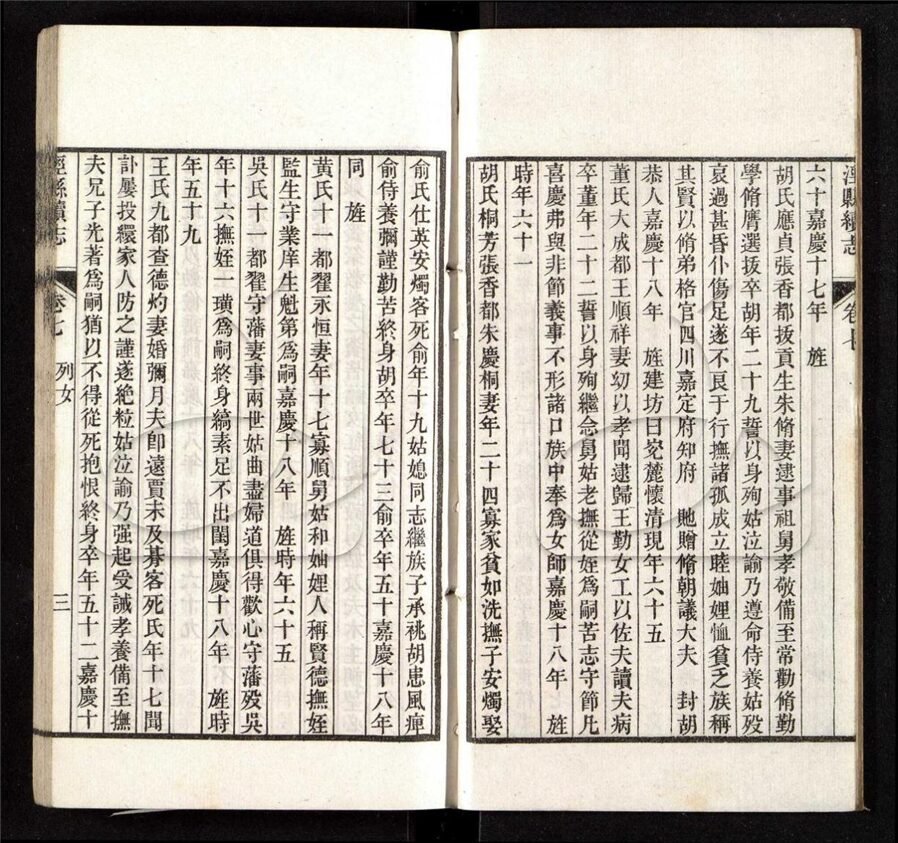 涇縣續志　卷七
六十嘉慶十七年　旌
胡氏應貞張香都拔貢生朱脩妻逮事祖舅孝敬備至常勸脩勤
學脩膺選拔卒胡年二十九誓以身殉姑泣諭乃遵命侍養姑歿
哀過甚昏仆傷足遂不良于行撫諸孤成立睦妯娌恤貧乏族稱
其賢以脩弟格官四川嘉定府知府　貤贈脩朝議大夫　封胡
恭人嘉慶十八年　旌建坊曰宛麓懷清現年六十五
董氏大成都王順祥妻幼以孝聞逮歸王勤女工以佐夫讀夫病
卒董年二十二誓以身殉繼念舅姑老撫從姪爲嗣苦志守節凡
喜慶弗與非節義事不形諸口族中奉爲女師嘉慶十八年　旌
時年六十一
胡氏桐芳張香都朱慶桐妻年二十四寡家貧如洗撫子安燭娶
俞氏仕英安燭客死俞年十九姑媳同志繼族子承祧胡患風痺
俞侍養彌謹勤苦終身胡卒年七十三俞卒年五十嘉慶十八年
同　旌
黃氏十一都翟永恒妻年十七寡順舅姑和妯娌人稱賢德撫姪
監生守業庠生魁第爲嗣嘉慶十八年　旌時年六十五
吳氏十一都翟守藩妻事兩世姑曲盡婦道俱得歡心守藩歿吳
年十六撫姪一璜爲嗣終身縞素足不出閨嘉慶十八年　旌時
年五十九
王氏九都查德灼妻婚彌月夫卽遠賈未及朞客死氏年十七聞
訃屢投繯家人防之謹遂絶粒姑泣諭乃强起受誡孝養備至撫
夫兄子光著爲嗣猶以不得從死抱恨終身卒年五十二嘉慶十
涇縣續志　卷七　列女　三